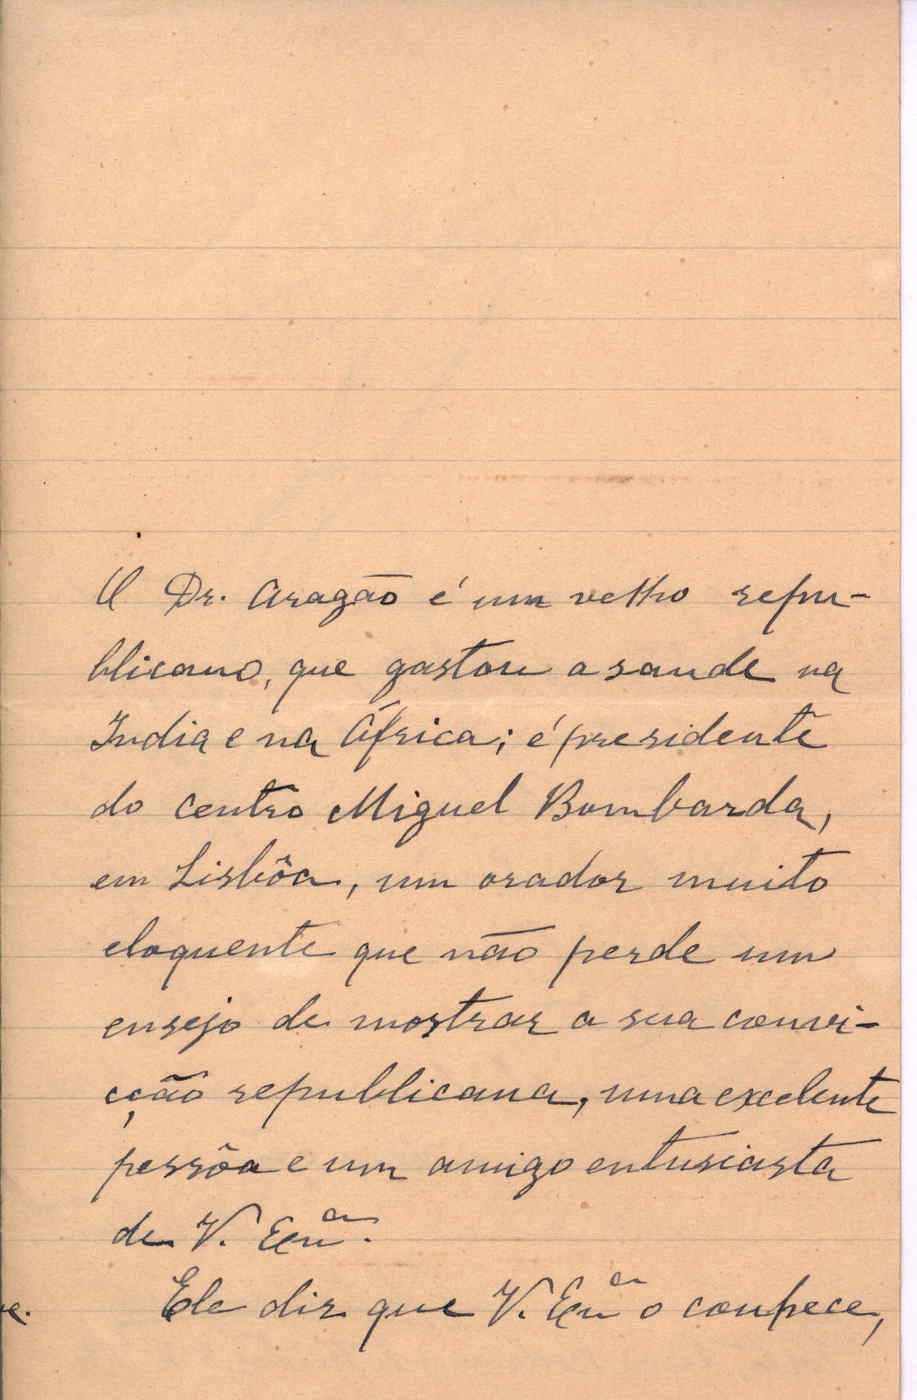 O Dr. Aragão é um velho repu-
blicano, que gastou a saude na
India e na África; é presidente
do centro Miguel Bombarda,
em Lisbôa, um orador muito
eloquente que não perde um
ensejo de mostrar a sua convi-
cção republicana, uma excelente
pessôa e um amigo entusiasta
de V. Exª.
Ele diz que V. Exª o conhece,